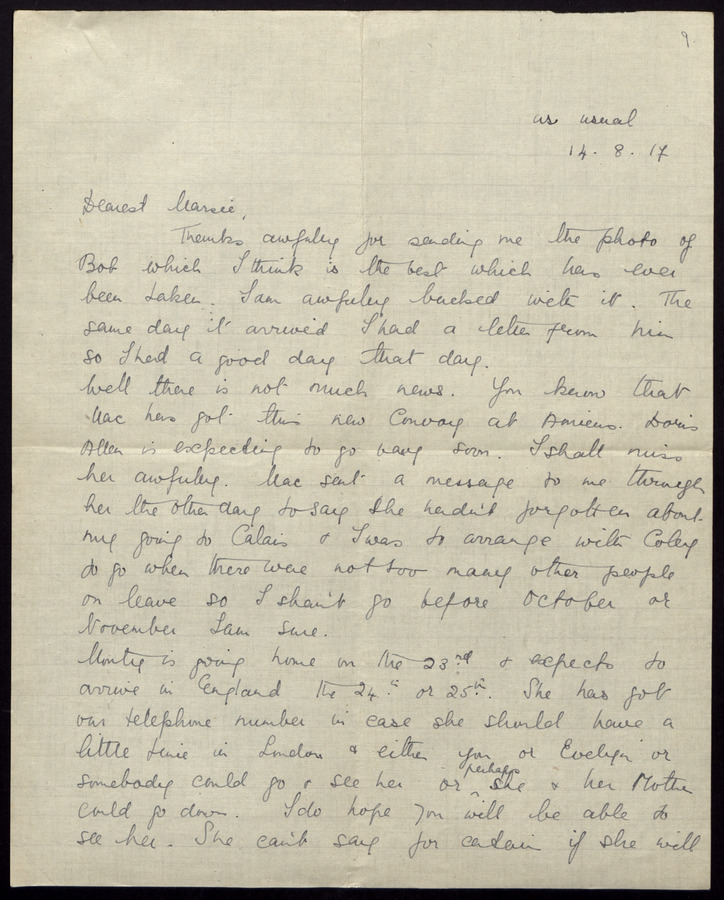 9.
as usual
14. 8. 17
Dearest Marsie,
Thanks awfully for sending me the photo of
Bob which I think is the best which has ever
been taken. I am awfully bucked with it. The
same day it arrived I had a letter from him
so I had a good day that day.
Well there is not much news. You know that
Mac has got this new Convoy at Amiens. Doris
Allen is expecting to go any soon. I shall miss
her awfully. Mac sent a message to me through
her the other day to say she hadn't forgotten about
my going to Calais & I was to arrange with Coley
to go when there were not too many other people
on leave so I shan't go before October or
November I am sure.
Monty is going home on the 23rd & expects to
arrive in England the 24th or 25th. She has got
our telephone number in case she should have a
little time in London & either you or Evelyn or
somebody could go & see her or perhaps she & her Mother
could go down. I do hope you will be able to
see her. She can't say for certain if she will